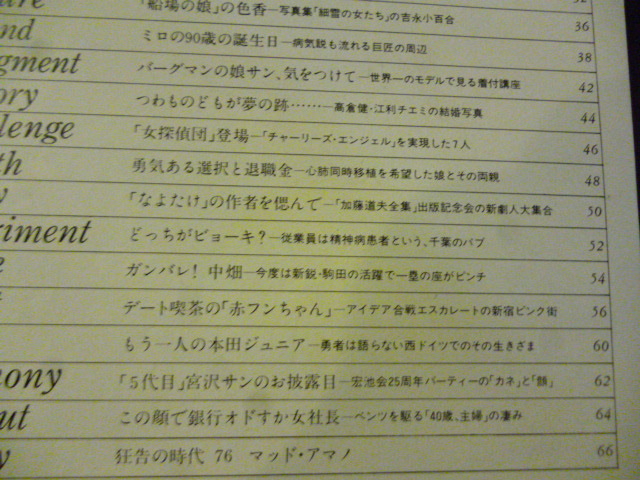 「船場の娘」の色香―写真集「細雪の女たち」の吉永小百合 36
nd ミロの90歳の誕生日―病気説も流れる巨匠の周辺 38
gment バーグマンの娘サン、気をつけて―世界一のモデルで見る着付講座 42
ory つわものどもが夢の跡……―高倉健・江利チエミの結婚写真 44
lenge 「女探偵団」登場―「チャーリーズ・エンジェル」を実現した7人 46
th 勇気ある選択と退職金―心肺同時移植を希望した娘とその両親 48
y 「なよたけ」の作者を偲んで―「加藤道夫全集」出版記念会の新劇人大集合 50
riment どっちがビョーキ?―従業員は精神病患者という、千葉のパブ 52
e ガンバレ! 中畑―今度は新鋭・駒田の活躍で一塁の座がピンチ 54
デート喫茶の「赤フンちゃん」―アイデア合戦エスカレートの新宿ピンク街 56
もう一人の本田ジュニア―勇者は語らない西ドイツでのその生きざま 60
mony 「5代目」宮沢サンのお披露目―宏池会25周年パーティーの「カネ」と「顔」 62
ut この顔で銀行オドすか女社長―ベンツを駆る「40歳、主婦」の凄み 64
y 狂告の時代 76 マッド・アマノ 66